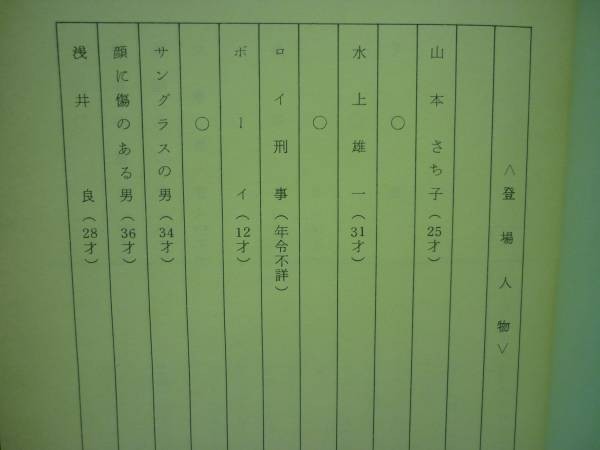 ＜登場人物＞
山本さち子（25才）
○
水上雄一（31才）
○
ロイ刑事（年令不詳）
ボーイ（12才）
○
サングラスの男（34才）
顔に傷のある男（36才）
浅井良（28才）